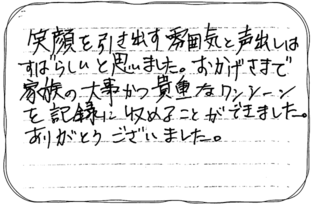 笑顔を引き出す雰囲気と声出しは
すばらしいと思いました。おかげさまで
家族の大事かつ貴重なワンシーン
を記録に収めることができました。
ありがとうございました。